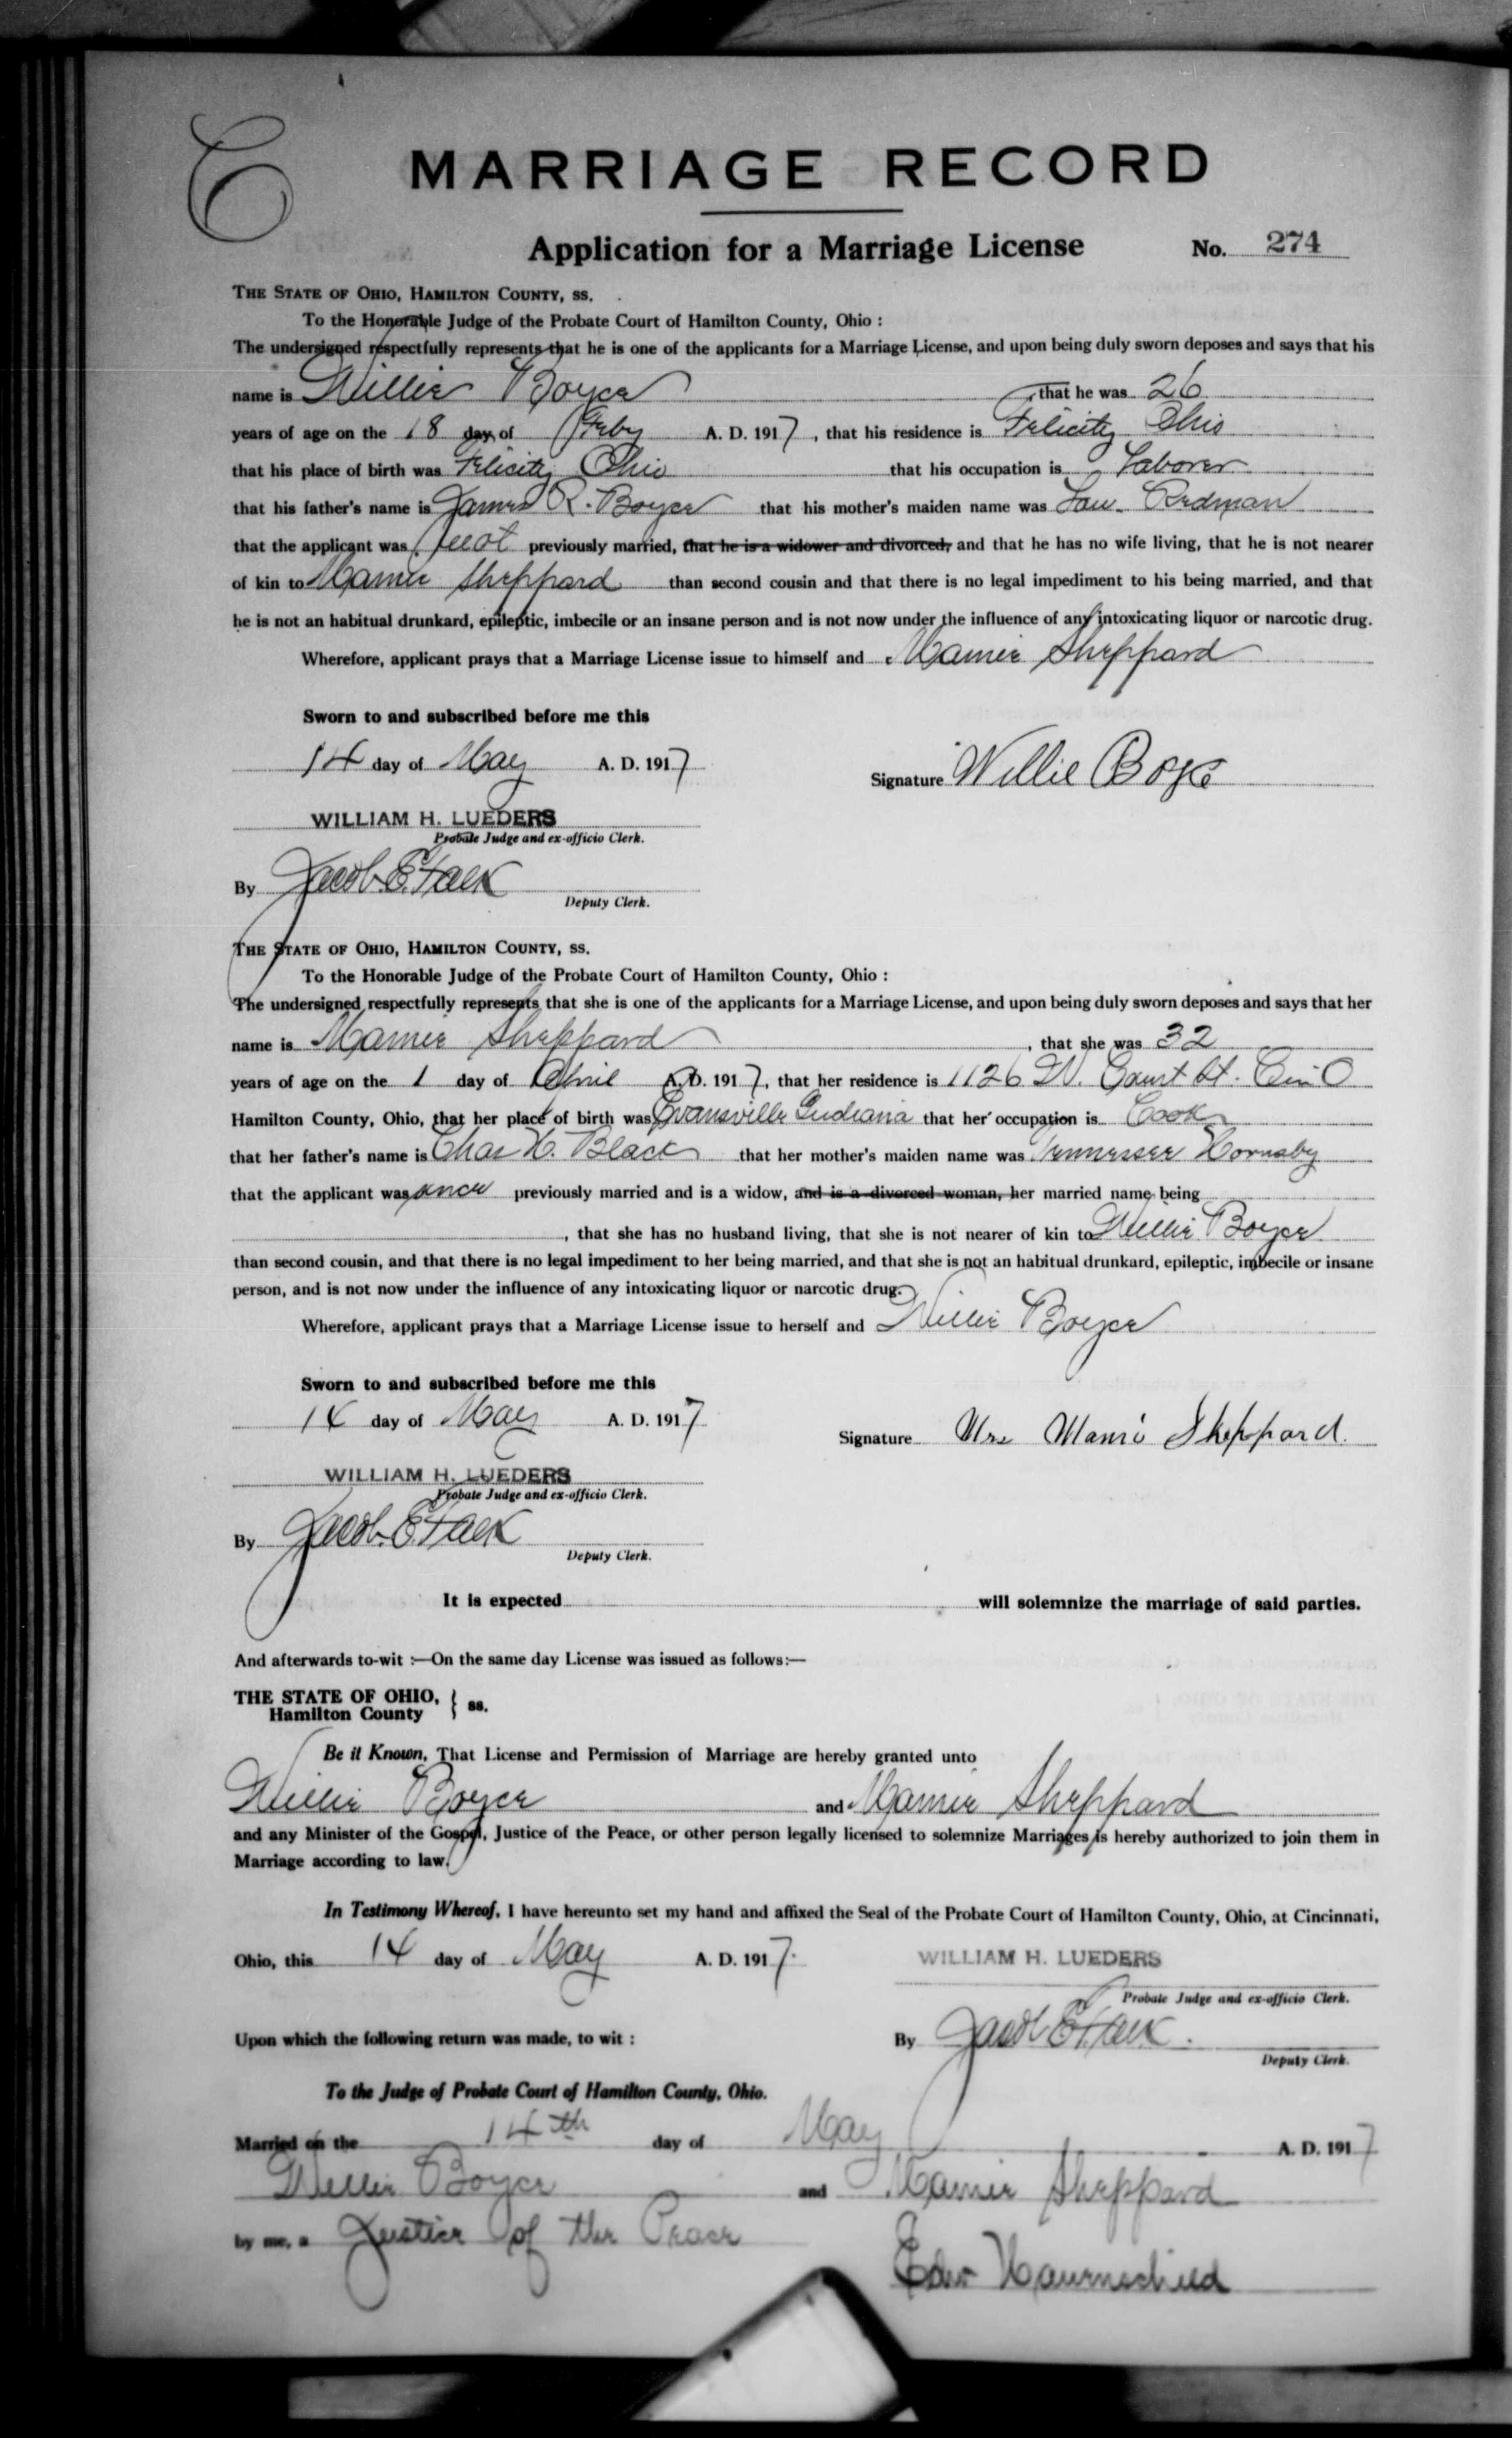 C
MARRIAGE RECORD
Application for a Marriage License No. 274
THE STATE OF OHIO, HAMILTON COUNTY, SS.
To the Honorable Judge of the Probate Court of Hamilton County, Ohio :
The undersigned respectfully represents that he is one of the applicants for a Marriage License, and upon being duly sworn deposes and says that his
name is Willie Boyce , that he was 26
years of age on the 18 day of Feby A. D. 1917, that his residence is Felicity Ohio
that his place of birth was Felicity Ohio that his occupation is Laborer
that his father's name is James R. Boyce that his mother's maiden name was Lou
that the applicant was not previously married, that he is a widower and divorced, and that he has no wife living, that he is not nearer
of kin to Mamie Sheppard than second cousin and that there is no legal impediment to his being married, and that
he is not an habitual drunkard, epileptic, imbecile or an insane person and is not now under the influence of any intoxicating liquor or narcotic drug.
Wherefore, applicant prays that a Marriage License issue to himself and Mamie Sheppard
Sworn to and subscribed before me this
14 day of May A. D. 1917
Signature Willie Boyce
WILLIAM H. LUEDERS
Probate Judge and ex-officio Clerk.
By Jacob E. Falk
Deputy Clerk.
THE STATE OF OHIO, HAMILTON COUNTY, SS.
To the Honorable Judge of the Probate Court of Hamilton County, Ohio :
The undersigned respectfully represents that she is one of the applicants for a Marriage License, and upon being duly sworn deposes and says that her
name is Mamie Sheppard , that she was 32
years of age on the 1 day of April A. D. 1917, that her residence is 1126 W. Court St. Cin O
Hamilton County, Ohio, that her place of birth was Evansville Indiana that her occupation is Cook
that her father's name is Chas H. Black that her mother's maiden name was Tennessee Hornsby
that the applicant was once previously married and is a widow, and is a divorced woman, her married name being
, that she has no husband living, that she is not nearer of kin to Willie Boyce
than second cousin, and that there is no legal impediment to her being married, and that she is not an habitual drunkard, epileptic, imbecile or insane
person, and is not now under the influence of any intoxicating liquor or narcotic drug.
Wherefore, applicant prays that a Marriage License issue to herself and Willie Boyce
Sworn to and subscribed before me this
14 day of May A. D. 1917
Signature Mrs Mamie Sheppard.
WILLIAM H. LUEDERS
Probate Judge and ex-officio Clerk.
By Jacob E. Falk
Deputy Clerk.
It is expected will solemnize the marriage of said parties.
And afterwards to-wit :—On the same day License was issued as follows:—
THE STATE OF OHIO, } ss.
Hamilton County
Be it Known, That License and Permission of Marriage are hereby granted unto
Willie Boyce and Mamie Sheppard
and any Minister of the Gospel, Justice of the Peace, or other person legally licensed to solemnize Marriages is hereby authorized to join them in
Marriage according to law.
In Testimony Whereof, I have hereunto set my hand and affixed the Seal of the Probate Court of Hamilton County, Ohio, at Cincinnati,
Ohio, this 14 day of May A. D. 1917.
WILLIAM H. LUEDERS
Probate Judge and ex-officio Clerk.
Upon which the following return was made, to wit :
By Jacob E. Falk.
Deputy Clerk.
To the Judge of Probate Court of Hamilton County, Ohio.
Married on the 14th day of May A. D. 1917
Willie Boyce and Mamie Sheppard
by me, a Justice of the Peace